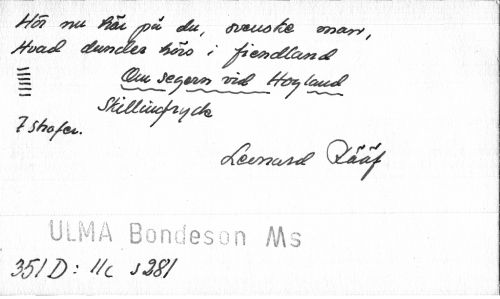 Hör nu här på du, svenske man,
Hvad dunder hörs i fiendland
Om segern vid Hogland
Skillingtryck
7 strofer.
Leonard Rääf
ULMA Bondeson Ms
351 D: 11c s 281